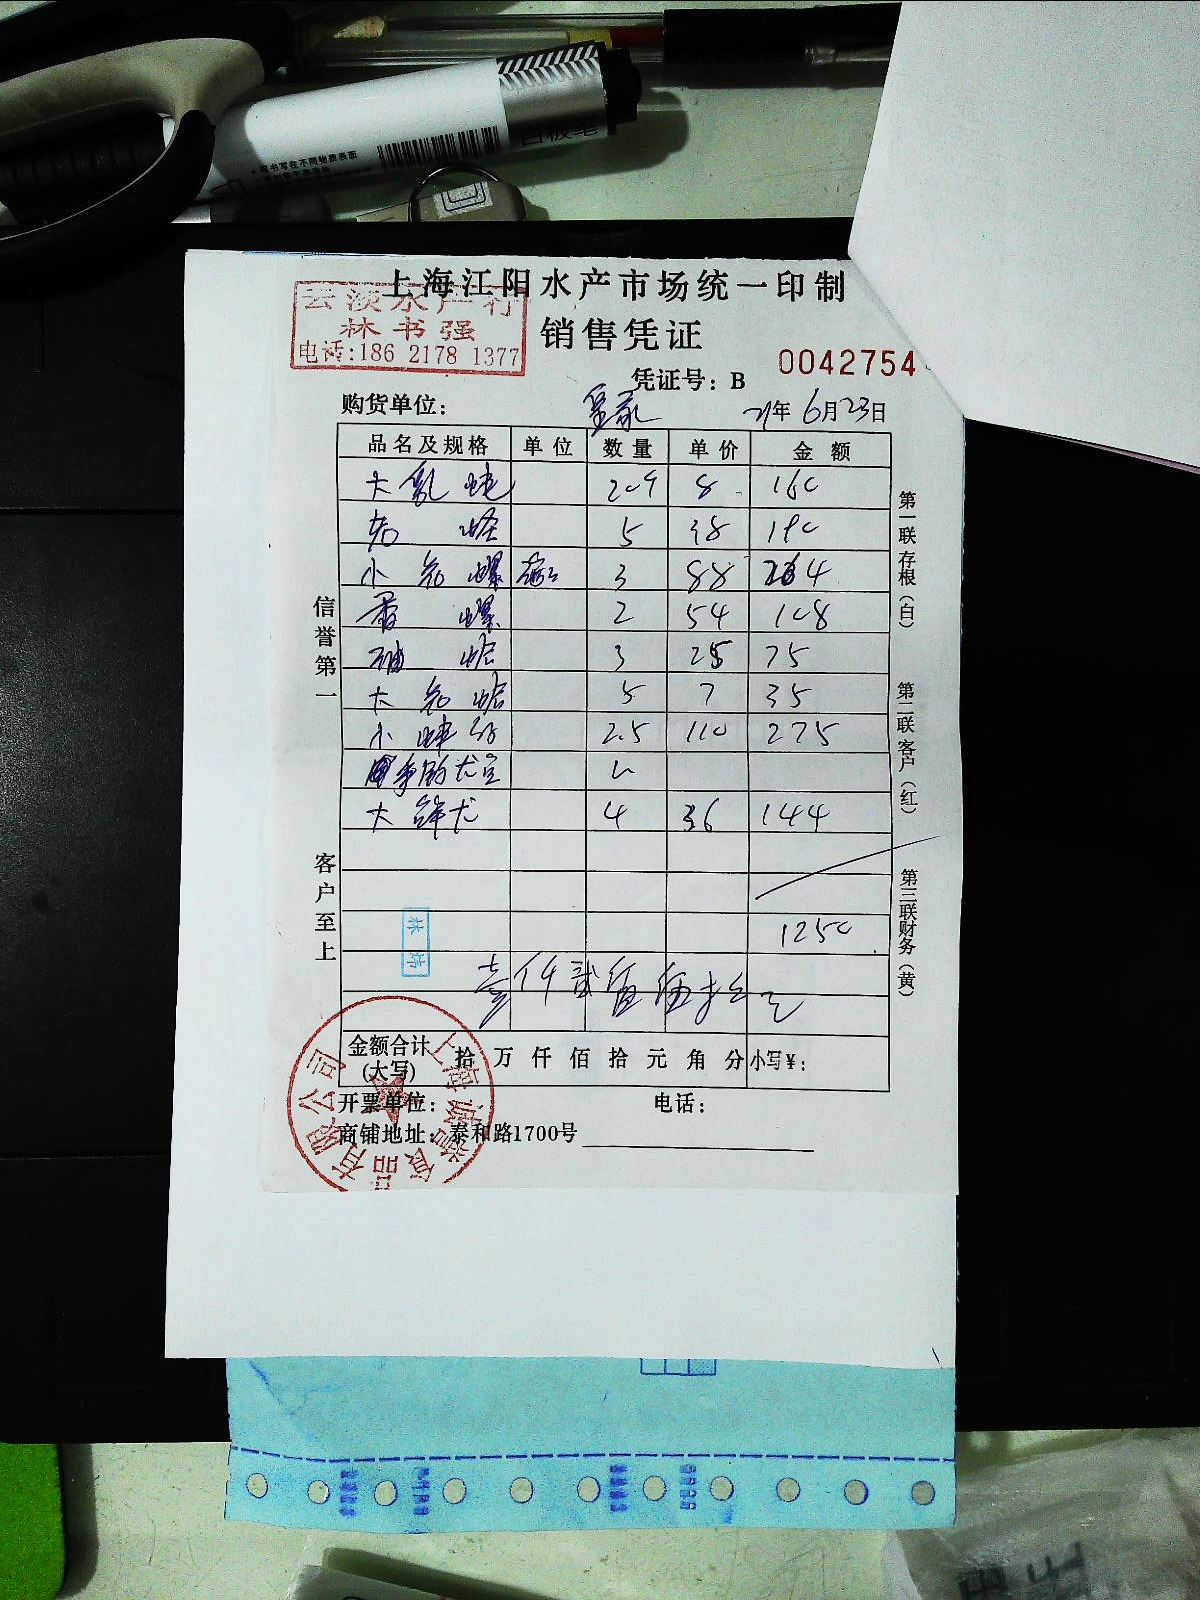 可书写在不同物质表面
白板笔
上海江阳水产市场统一印制
云淡水产行
林书强
电话:186 2178 1377
销售凭证
凭证号：B 0042754
购货单位：
21年 6月23日
品名及规格 单位 数量 单价 金额
大 8 160
5 38 190
小 螺 3 88 264
香螺 2 54 108
3 25 75
大 蛤 5 7 35
小 2.5 110 275
大 4 36 144
1250
壹仟贰佰伍拾元
金额合计(大写) 拾 万 仟 佰 拾 元 角 分 小写¥：
开票单位： 电话：
商铺地址：泰和路1700号
信誉第一
客户至上
第一联存根（白）
第二联客户（红）
第三联财务（黄）
上海诚誉食品有限公司